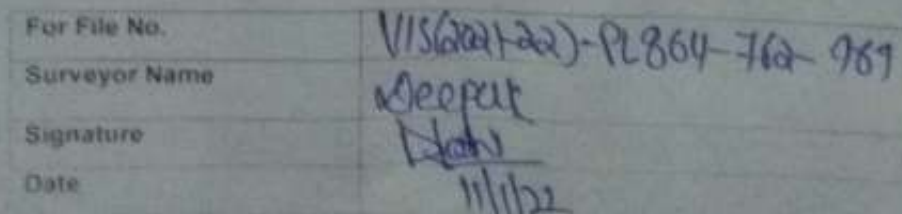 For File No. VIS(2021-22)-PL864-762-969
Surveyor Name Deepak
Signature
Date 11/1/22